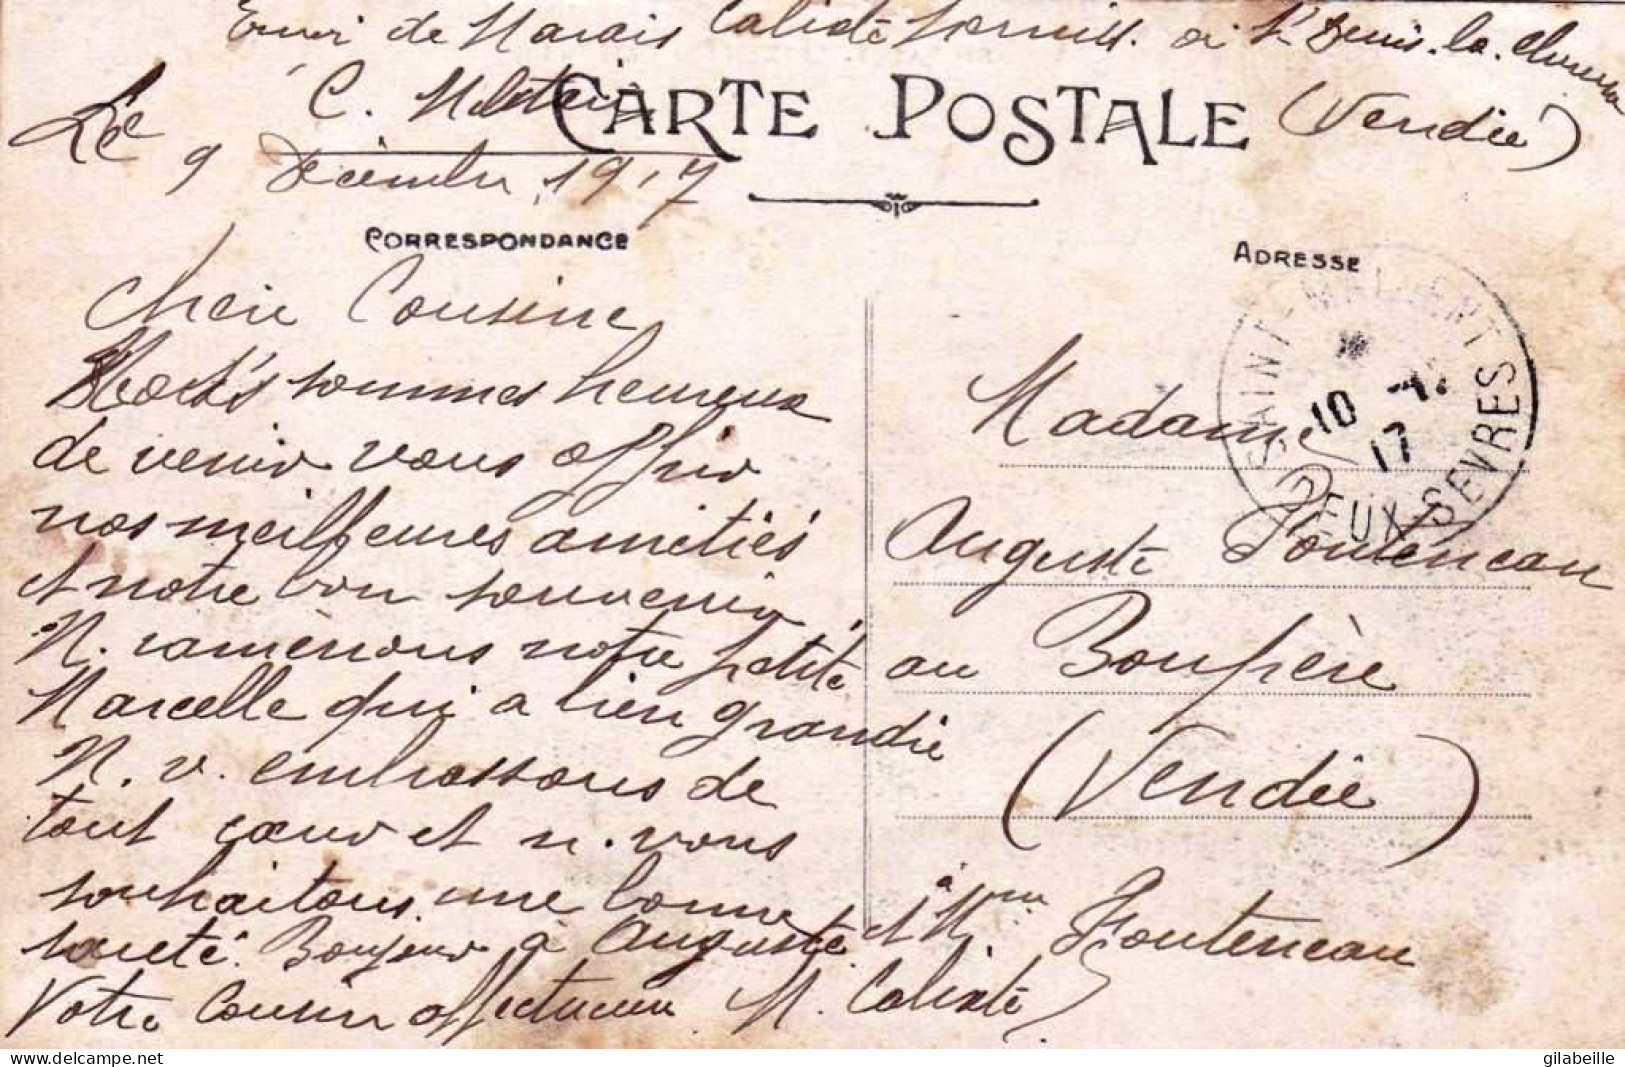 Envoi de Marais Calixte à St Denis-la-Chevasse
(Vendée)
C. Militaire
CARTE POSTALE
Le 9 Décembre 1917
CORRESPONDANCE
ADRESSE
SAINT-MAIXENT
10 -12
17
DEUX-SEVRES
Chère Cousine
sommes heureux
de venir vous offrir
nos meilleures amitiés
et notre bon souvenir
N. ramenons notre petite
Marcelle qui a bien grandie
N. v. embrassons de
tout cœur et n. vous
souhaitons une bonne
santé. Bonjour à Auguste et à M. Mme Fonteneau
Votre Cousin affectueux M. Calixte
Madame
Auguste Fonteneau
au Boupère
(Vendée)
gilabeille
delcampe.net